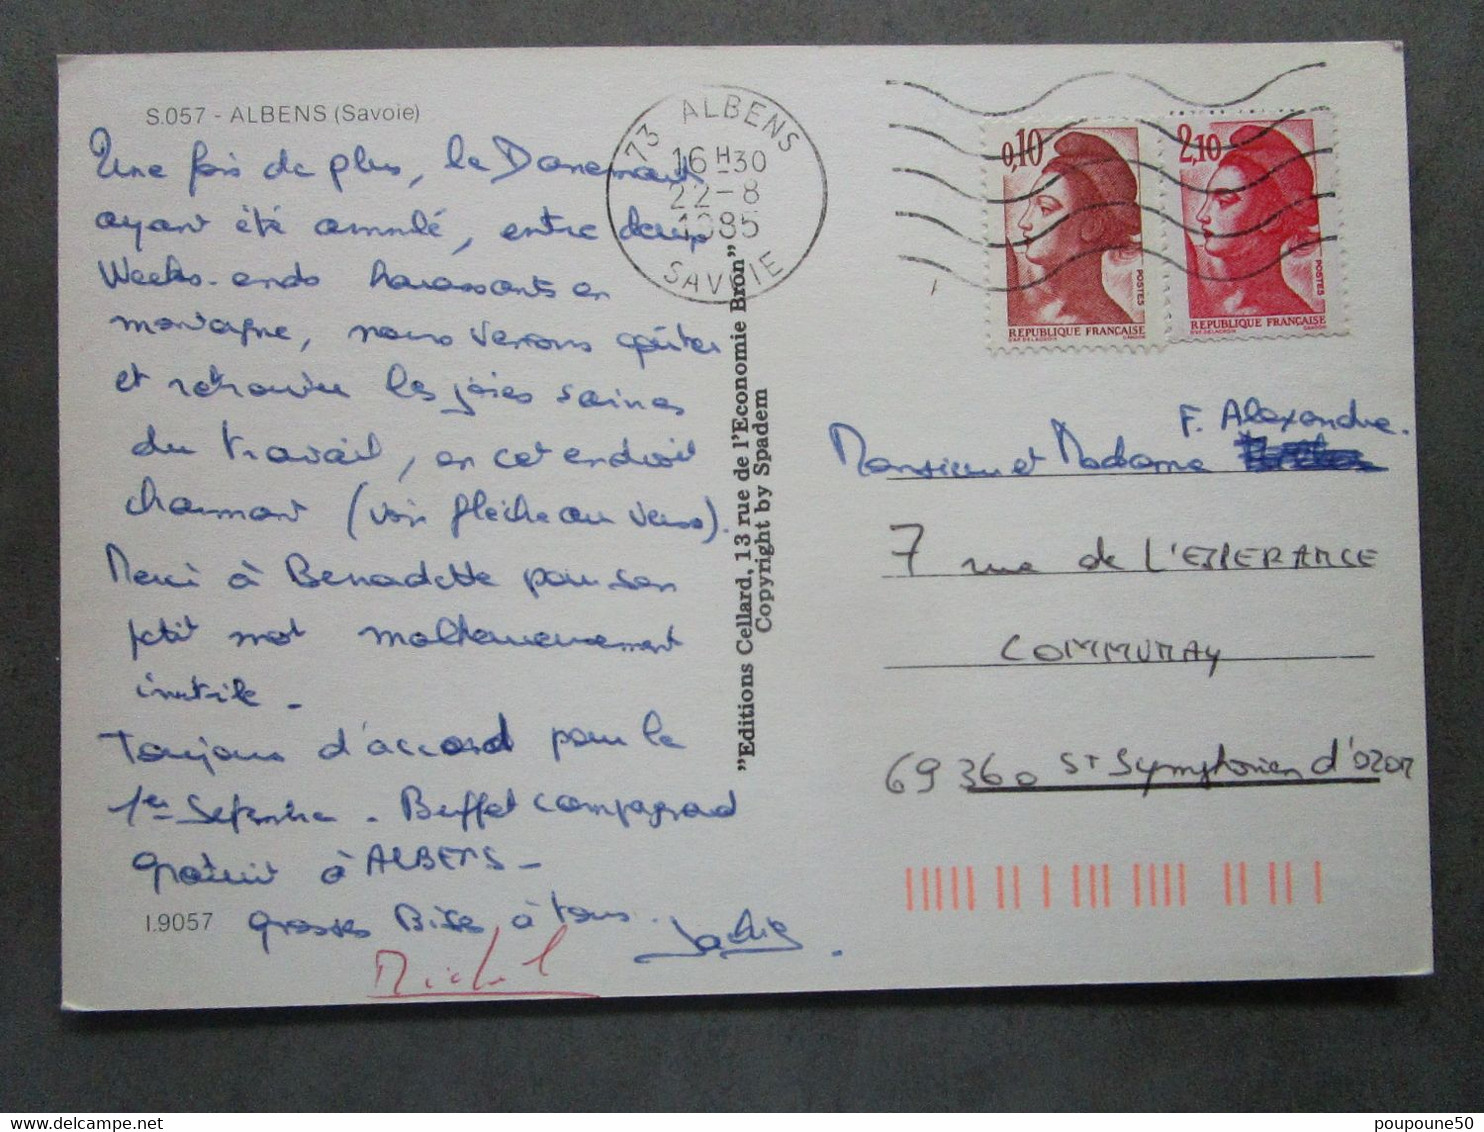 S.057 - ALBENS (Savoie)
Une fois de plus, le Danemark
ayant été annulé, entre deux
Weeks-ends harassants en
montagne, nous venons goûter
et retrouver les joies saines
du travail, en cet endroit
charmant (voir flèche au verso).
Merci à Bernadette pour son
petit mot malheureusement
inutile -
Toujours d'accord pour le
1er Septembre. Buffet campagnard
gratuit à ALBENS -
grosses Bises à tous.
Michel
I.9057
"Editions Cellard, 13 rue de l'Economie Bron"
Copyright by Spadem
73 ALBENS
16 H30
22-8
1985
SAVOIE
0,10
POSTES
REPUBLIQUE FRANÇAISE
D'AP. DELACROIX GANDON
2,10
POSTES
REPUBLIQUE FRANÇAISE
D'AP. DELACROIX GANDON
F. Alexandre.
Monsieur et Madame
7 rue de L'ESPERANCE
COMMUNAY
69360 St Symphorien d'OZON
poupoune50